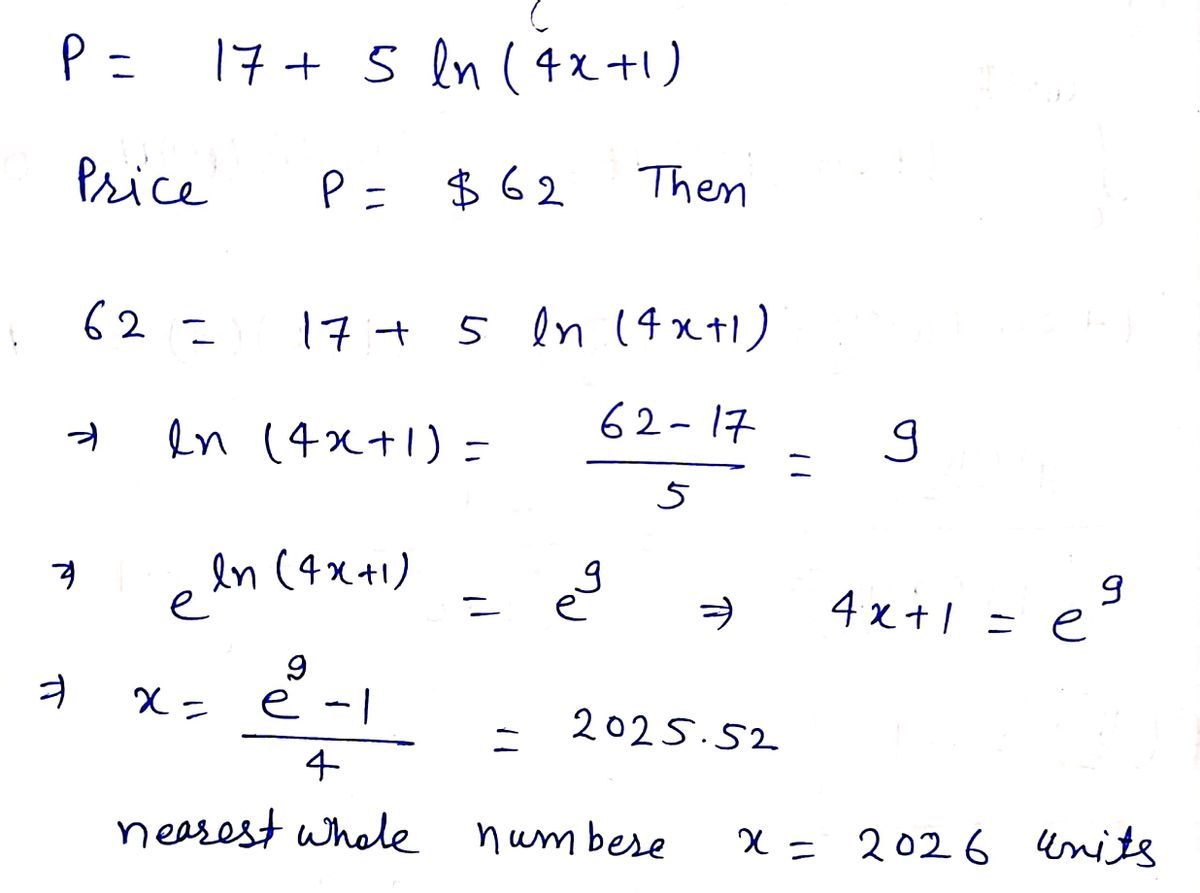 P = 17 + 5 ln (4x+1)
Price P = $62 Then
62 = 17 + 5 ln (4x+1)
⇒ ln (4x+1) = (62-17)/5 = 9
⇒ e^(ln (4x+1)) = e^9 ⇒ 4x+1 = e^9
⇒ x = (e^9 -1)/4 = 2025.52
nearest whole numbere x = 2026 units